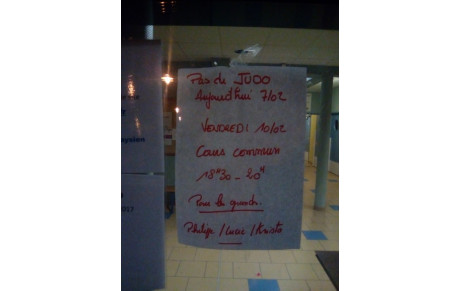 Pas de JUDO
Aujourd'hui 7/02
VENDREDI 10/02
Cours commun
18H30 - 20H
Pour les grands.
Philippe / Lucas / Kristo
2017